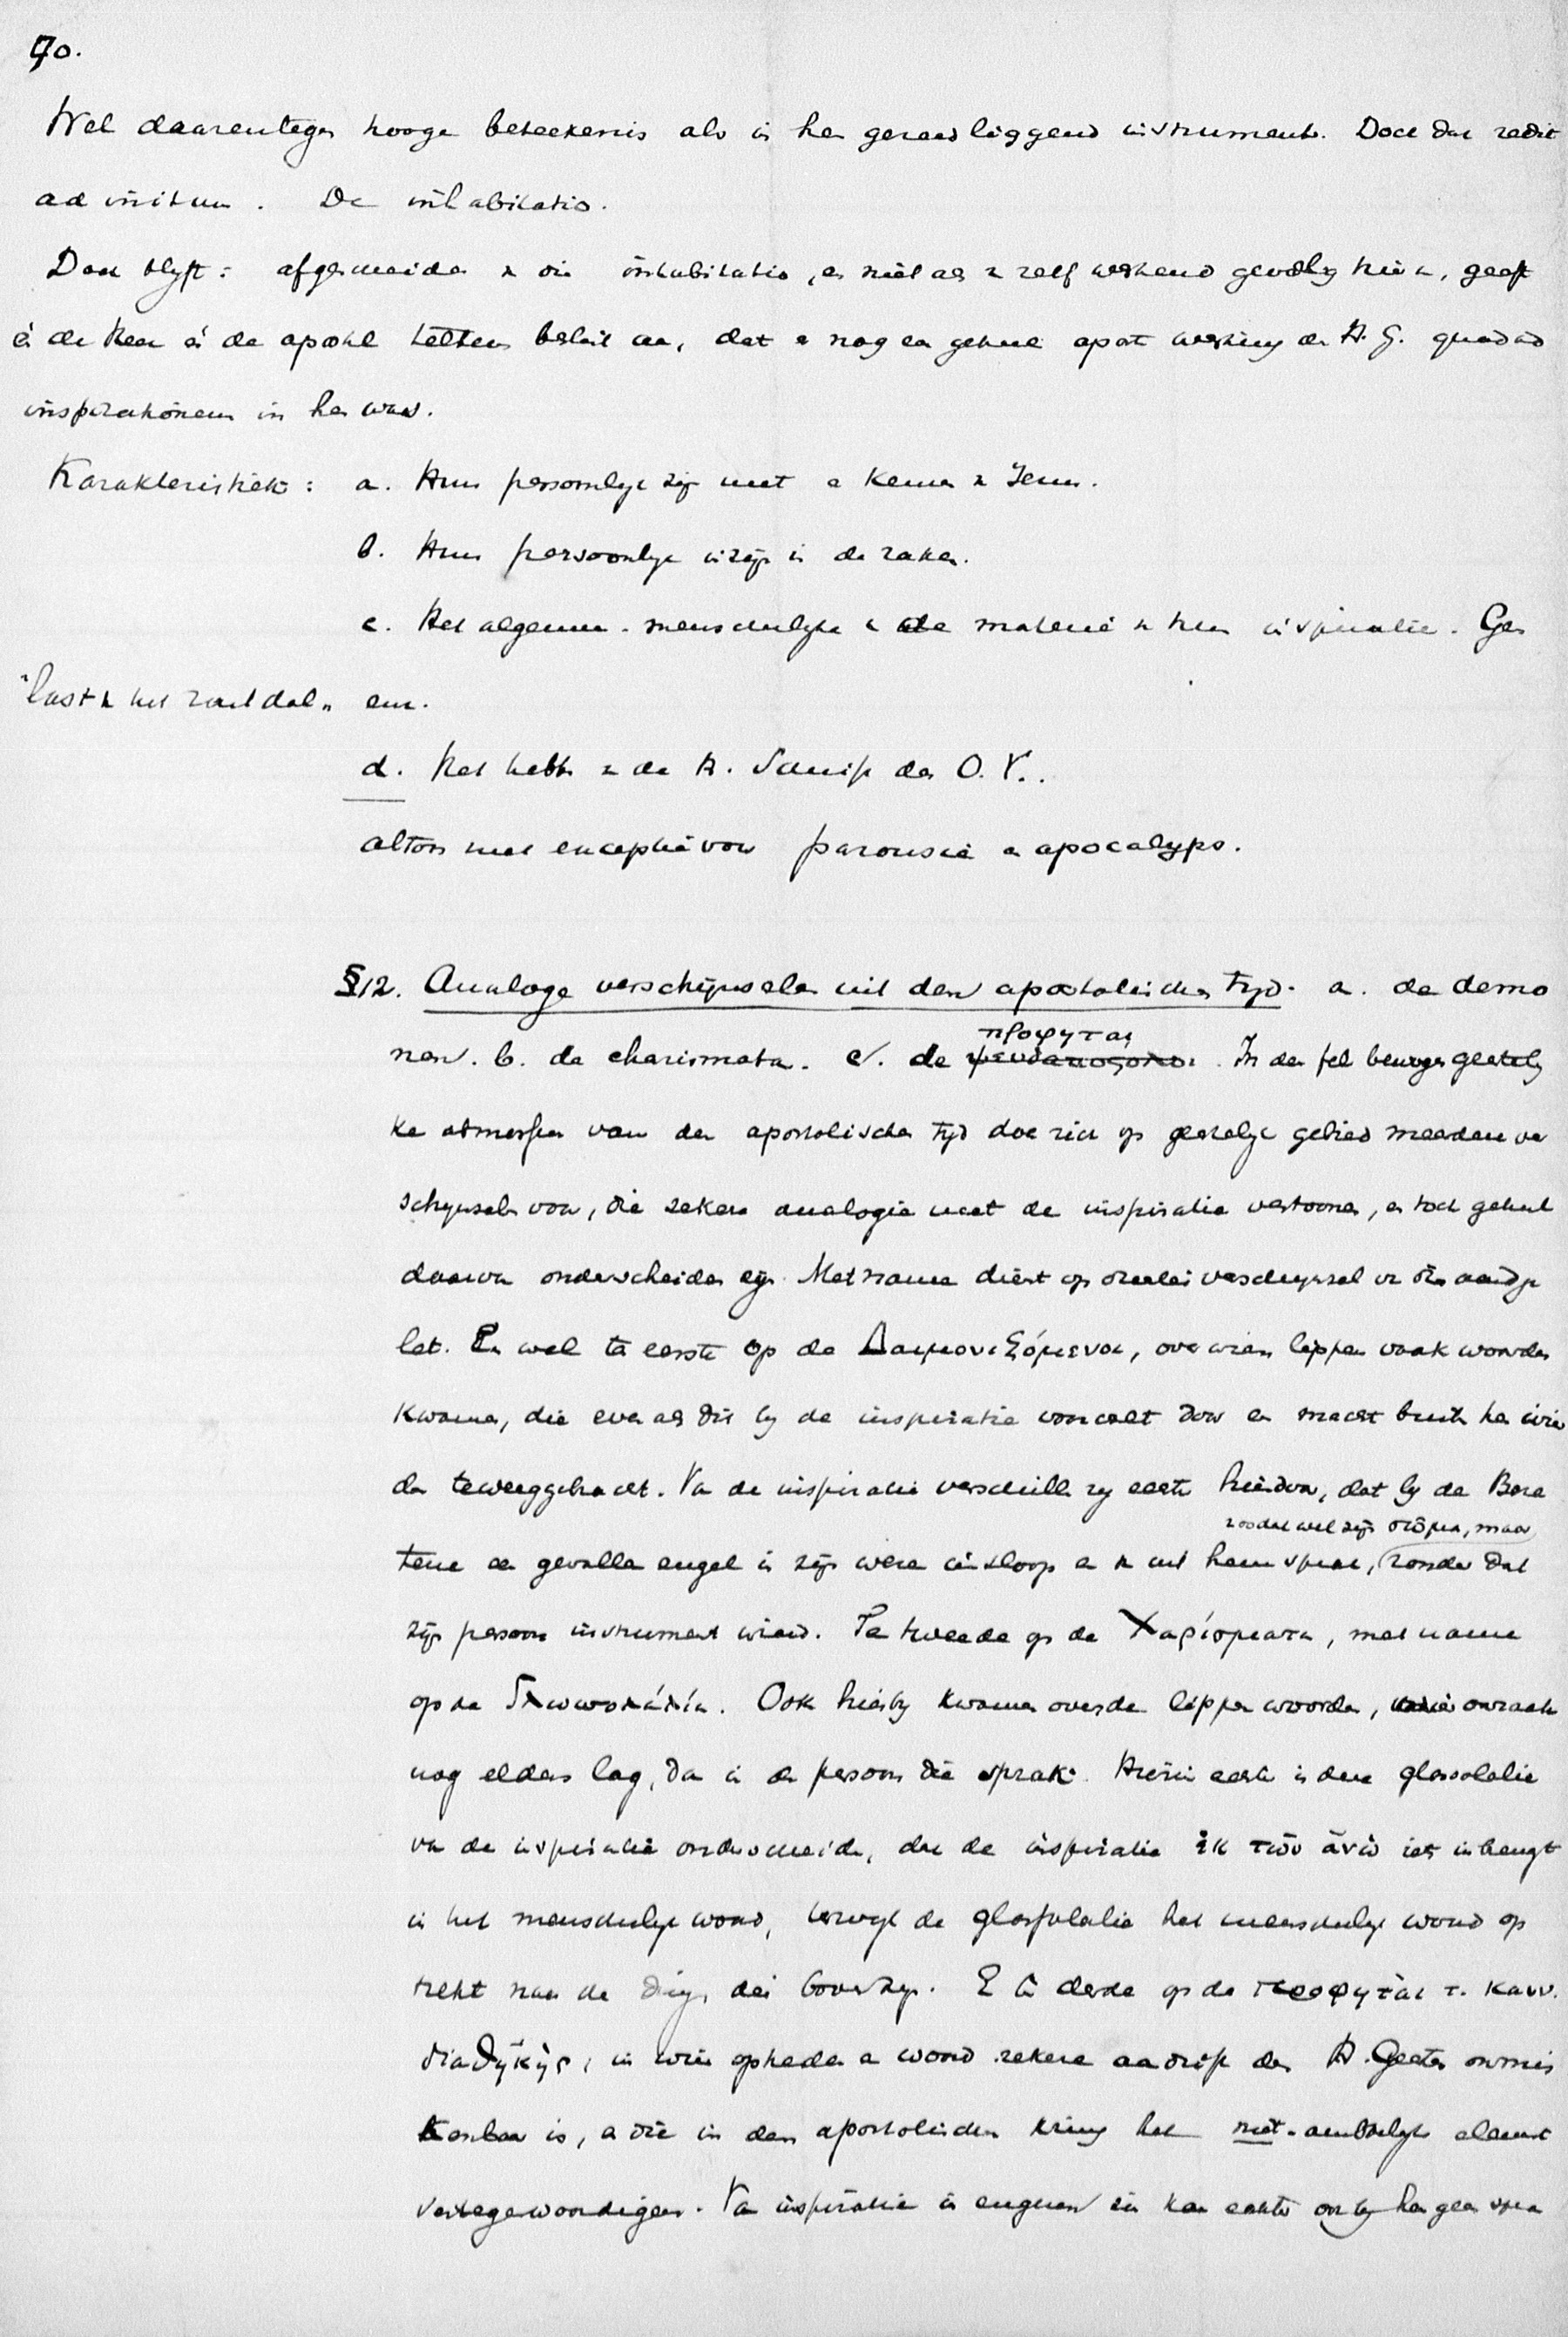 70.
Wel daarentegen hooge beteekenis als in hen gereed liggend instrument. Doch dat redit
ad initium. De inhabitatio.
Doch blyft: afgescheiden v die inhabitatio, en niet als v zelf werkend gevolg hierv, geeft
èn de Heer èn de apostel telkens beslist aan, dat er nog een geheel aparte werking der H. G. quoad
inspirationem in hen was.
Karakteristiek: a. Hun persoonlyk zijn met en kennen v Jezus.
b. Hun persoonlyk inzijn in de zaken.
c. Het algemeen-menschelyke v de materie v hun inspiratie. Geen
"last v het zout dal" enz.
d. Het hebben v de H. Schrift des O. V..
altoos met exceptie voor parousie en apocalyps.
§12. Analoge verschijnselen uit den apostolischen tyd. a. de demo
nen. b. de charismata. c. de προφηται. In den fel bewogen geestely
ke atmosfeer van den apostolischen tyd doen zich op geestelyk gebied meerdere ver
schynselen voor, die zekere analogie met de inspiratie vertoonen, en toch geheel
daarvan onderscheiden zijn. Met name dient op drieërlei verschynsel v dien aard ge
let. En wel ten eerste op de Δαιμονιζόμενοι, over wier lippen vaak woorden
kwamen, die even als dit by de inspiratie voorvalt door een macht buiten hen wier
den teweeggebracht. Van de inspiratie verschillen zy echter hierdoor, dat by de Beze
tene een gevallen engel in zijn wezen insloop en v uit hem sprak, zoodat wel zijn στόμα, maar zonder dat
zijn persoon instrument wierd. Ten tweede op de Χαρίσματα, met name
op de Γλωσσολαλία. Ook hierby kwamen over de lippen woorden, wier oorzaak
nog elders lag, dan in den persoon die sprak. Hierin echter is deze glossolalie
van de inspiratie onderscheiden, dat de inspiratie ἐκ τῶν ἄνω iets inbrengt
in het menschelyk woord, terwyl de glossolalie het menschelyk woord op
trekt naar de dingen die boven zyn. En ten derde op de προφῆται τ. καιν.
διαθήκης, in wier optreden en woord zekere aandrift des H. Geestes onmis
kenbaar is, en die in den apostolischen kring het niet-ambtelyk element
vertegenwoordigen. Van inspiratie in engeren zin kan echter ook by hen geen spra